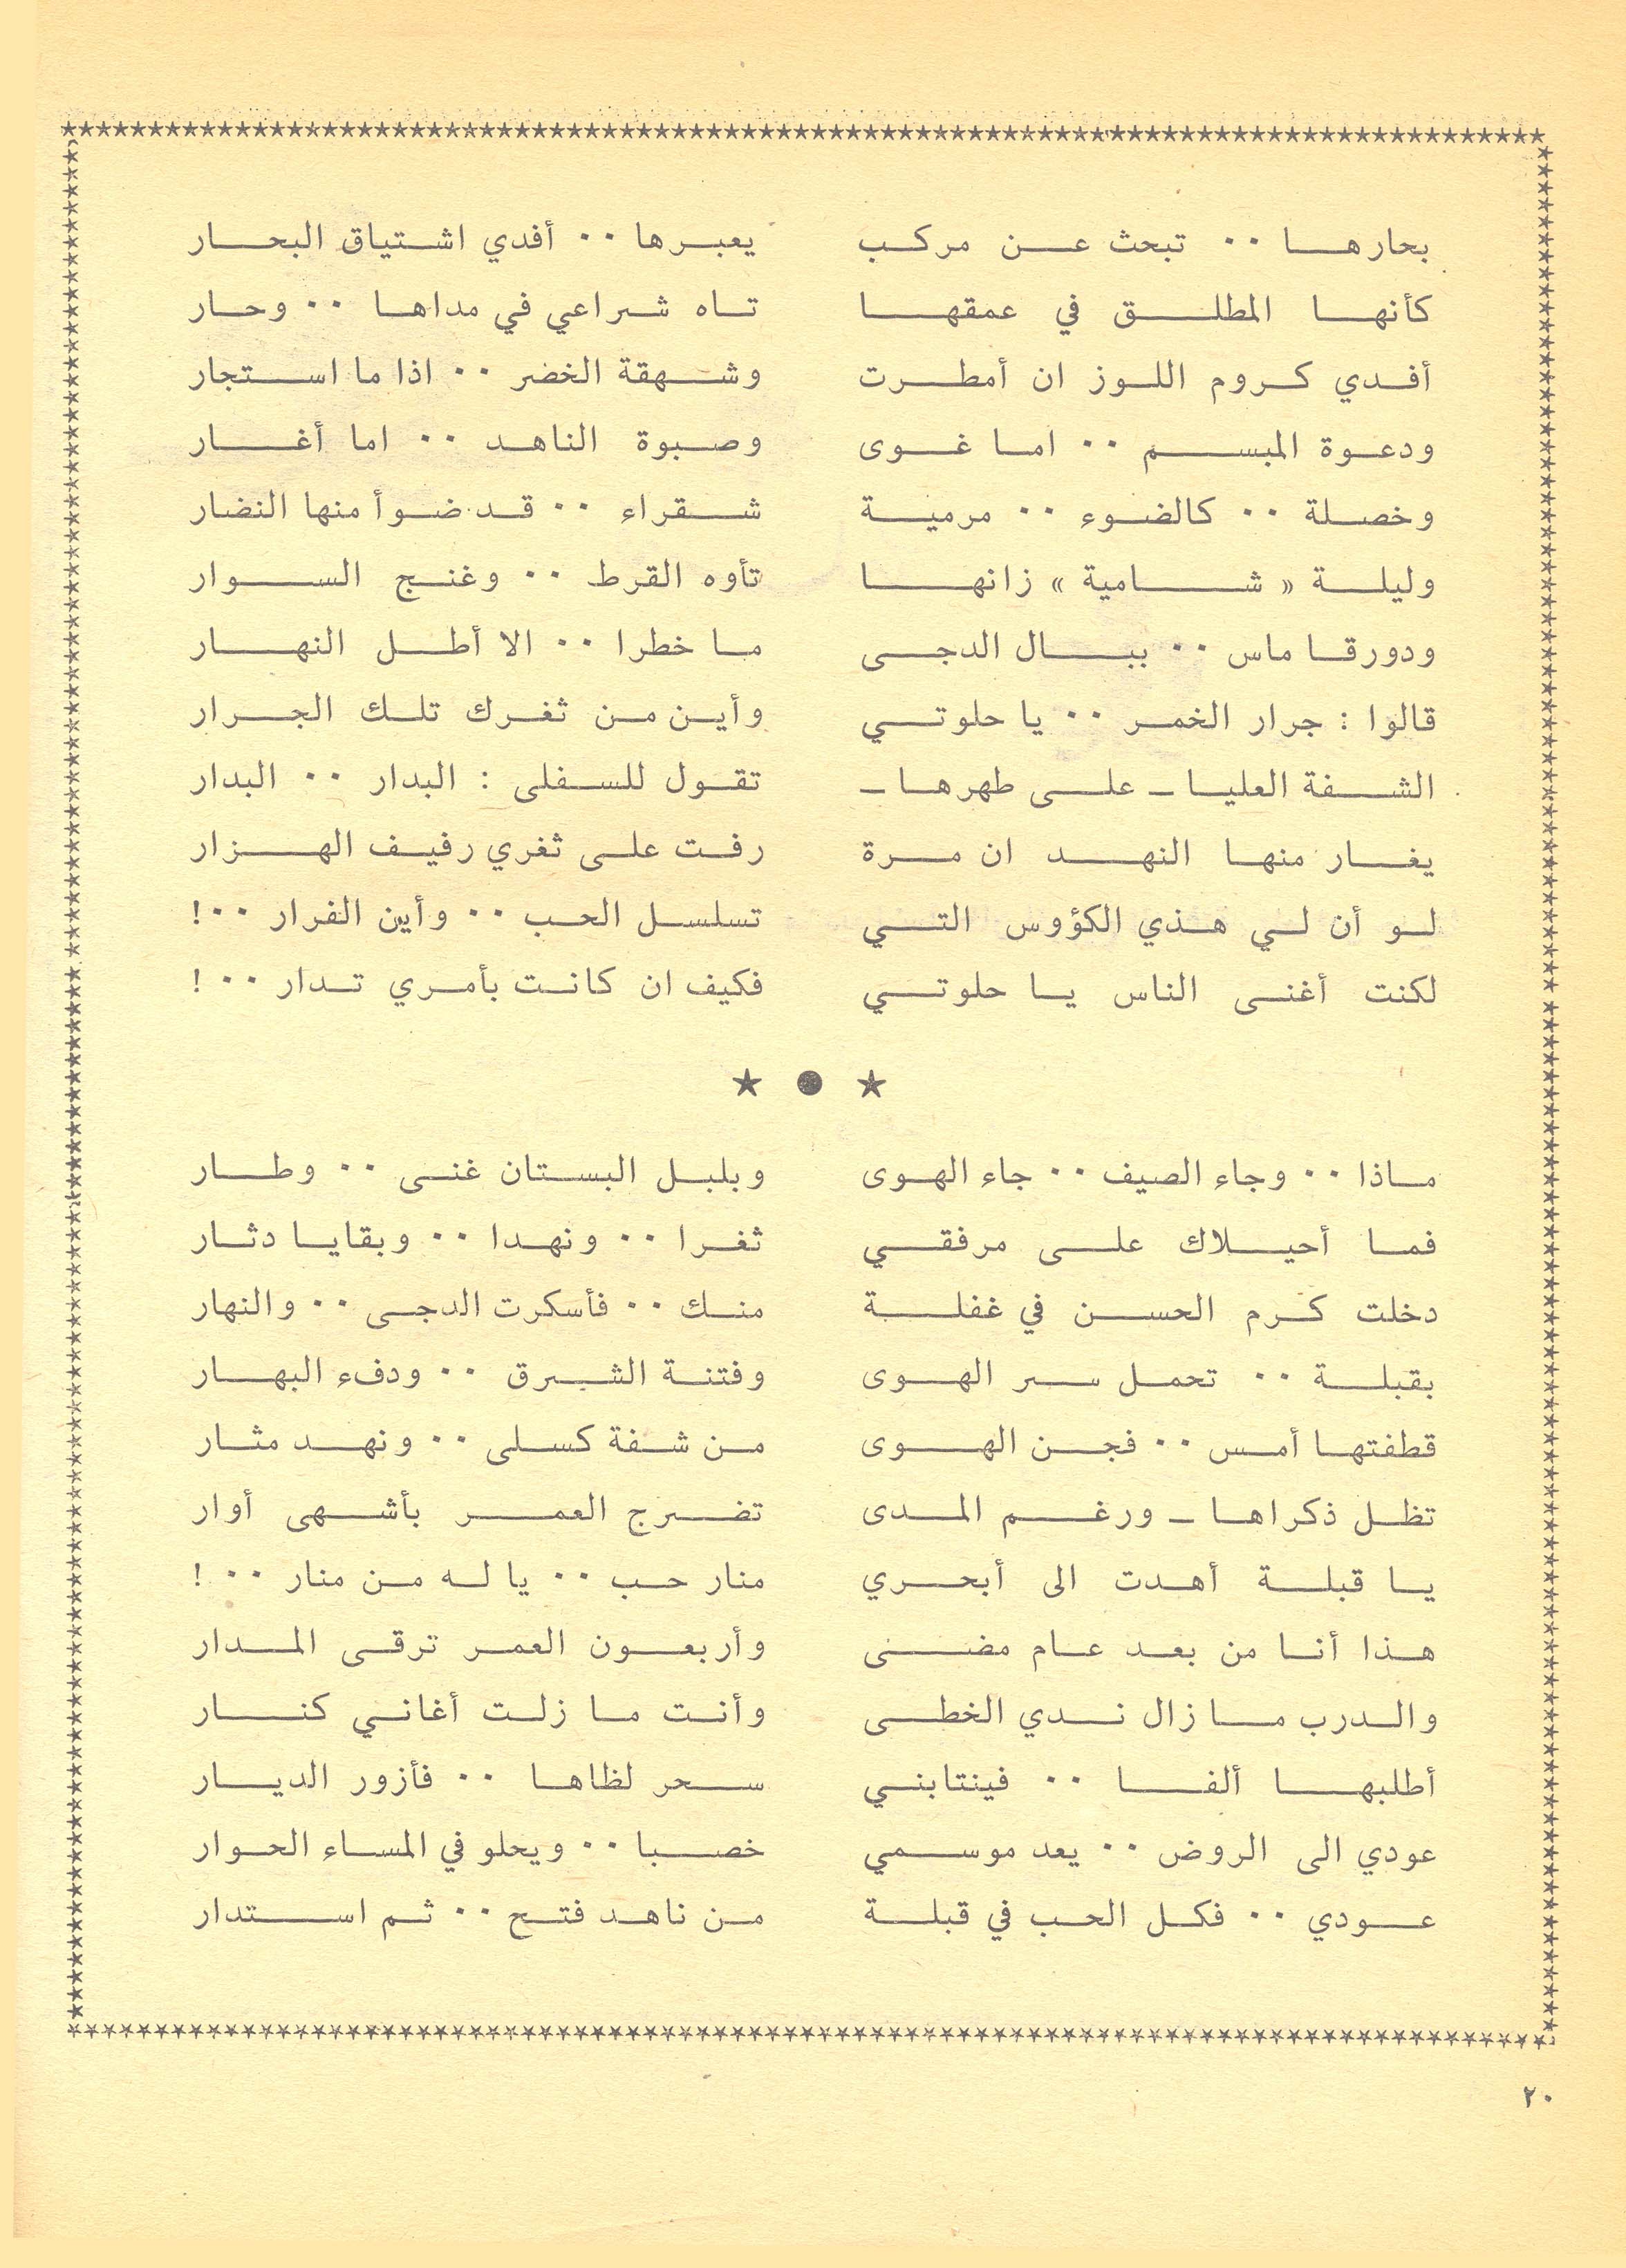 بحارها ٠٠ تبحث عن مركب يعبرها ٠٠ أفدي اشتياق البحار
كأنها المطلق في عمقها تاه شراعي في مداها ٠٠ وحار
أفدي كروم اللوز ان أمطرت وشهقة الخضر ٠٠ اذا ما استجار
ودعوة المبسم ٠٠ اما غوى وصبوة الناهد ٠٠ اما أغار
وخصلة ٠٠ كالضوء ٠٠ مرمية شقراء ٠٠ قد ضوأ منها النضار
وليلة « شامية » زانها تأوه القرط ٠٠ وغنج السوار
ودورقا ماس ٠٠ ببال الدجى ما خطرا ٠٠ الا أطل النهار
قالوا : جرار الخمر ٠٠ يا حلوتي وأين من ثغرك تلك الجرار
الشفة العليا ـ على طهرها ـ تقول للسفلى : البدار ٠٠ البدار
يغار منها النهد ان مرة رفت على ثغري رفيف الهزار
لو أن لي هذي الكؤوس التي تسلسل الحب ٠٠ وأين الفرار ٠٠!
لكنت أغنى الناس يا حلوتي فكيف ان كانت بأمري تدار ٠٠ !
★ ● ★
ماذا ٠٠ وجاء الصيف ٠٠ جاء الهوى وبلبل البستان غنى ٠٠ وطار
فما أحيلاك على مرفقي ثغرا ٠٠ ونهدا ٠٠ وبقايا دثار
دخلت كرم الحسن في غفلة منك ٠٠ فأسكرت الدجى ٠٠ والنهار
بقبلة ٠٠ تحمل سر الهوى وفتنة الشرق ٠٠ ودفء البهار
قطفتها أمس ٠٠ فجن الهوى من شفة كسلى ٠٠ ونهد مثار
تظل ذكراها ـ ورغم المدى تضرج العمر بأشهى أوار
يا قبلة أهدت الى أبحري منار حب ٠٠ يا له من منار ٠٠ !
هذا أنا من بعد عام مضنى وأربعون العمر ترقى المدار
والدرب ما زال ندي الخطى وأنت ما زلت أغاني كنار
أطلبها ألفا ٠٠ فينتابني سحر لظاها ٠٠ فأزور الديار
عودي الى الروض ٠٠ يعد موسمي خصبا ٠٠ ويحلو في المساء الحوار
عودي ٠٠ فكل الحب في قبلة من ناهد فتح ٠٠ ثم استدار
٢٠